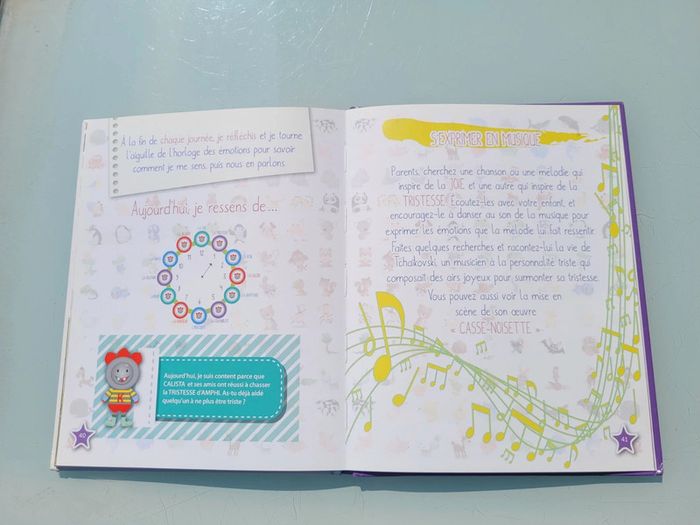 À la fin de chaque journée, je réfléchis et je tourne
l'aiguille de l'horloge des émotions pour savoir
comment je me sens, puis nous en parlons.
Aujourd'hui, je ressens de...
12
1
2
3
4
5
6
7
8
9
10
11
Aujourd'hui, je suis content parce que
CALISTA et ses amis ont réussi à chasser
la TRISTESSE d'AMPHI. As-tu déjà aidé
quelqu'un à ne plus être triste ?
40
S'EXPRIMER EN MUSIQUE
Parents, cherchez une chanson ou une mélodie qui
inspire de la JOIE et une autre qui inspire de la
TRISTESSE. Écoutez-les avec votre enfant, et
encouragez-le à danser au son de la musique pour
exprimer les émotions que la mélodie lui fait ressentir.
Faites quelques recherches et racontez-lui la vie de
Tchaïkovski, un musicien à la personnalité triste qui
composait des airs joyeux pour surmonter sa tristesse.
Vous pouvez aussi voir la mise en
scène de son œuvre
« CASSE-NOISETTE »
41